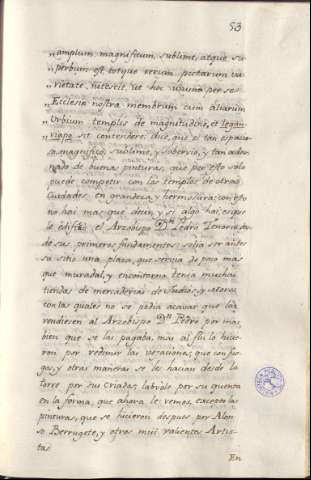 53
„amplum magnificum, sublime, atque su
„perbum est totque rerum pictarum va
„rietate nitescit, ut hoc unum per se
Ecclesiæ nostræ membrum cum aliarum
Urbium templis de magnitudine, et
sit contendere: dice, que es tan espacio
sa, magnifico, sublime, y sobervio, y tan ador
nado de buena pinturas, que por esto solo
puede competir con los templos de otras
Ciudades en grandeza, y hermosura; con esto
no hai mas que decir, y si algo hai, es que
le edificó el Arzobispo Dn. Pedro Tenorio des
de sus primeros fundamentos: solia ser antes
su sitio una plaza, que servia de poco mas
que muradal, y encontorno tenia muchas
tiendas de mercaderias de Judios, y otros
con los quales no se podia acavar que las
vendiesen al Arzobispo Dn. Pedro por mas
bien que se las pagaba, mas al fin lo hicie
ron por redimir las vejaciones, que con fue
gos, y otras maneras se les hacian desde la
torre por sus criados, labrólo por su quenta
en la forma, que ahora le vemos, excepto las
pinturas, que se hicieron despues por Alon
so Berruguete, y otros mui valientes Artis
tas
En